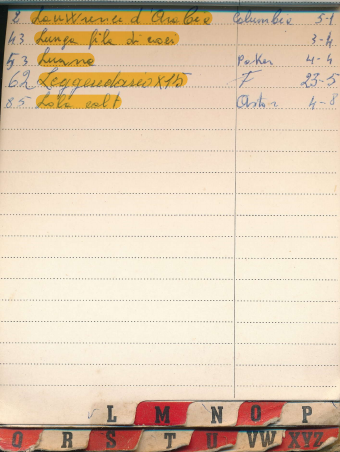 2 Lawrence d'Arabia Columbia 5-1
43 Lunga fila di croci 3-4
53 Luana 4-4
62 Leggendario X15 F 23-5
85 Lola colt 4-8
L M N O P
Q R S T U VW XYZ